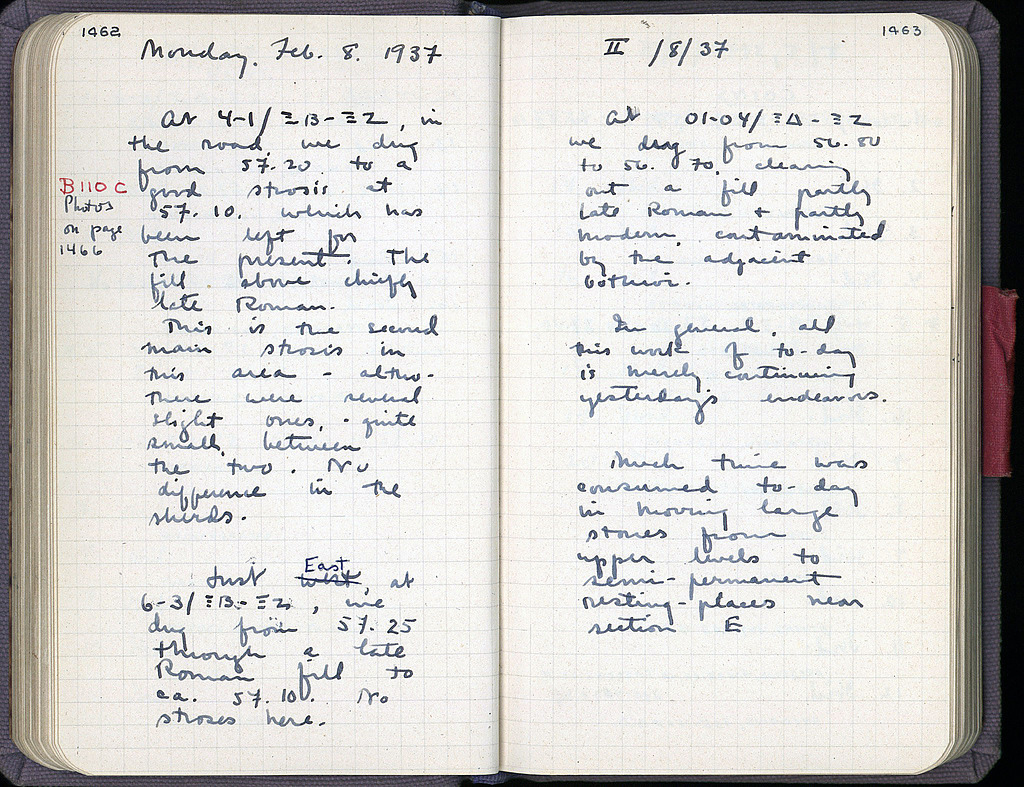 1462
Monday. Feb. 8. 1937
At 4-1/ΞΒ-ΞΖ, in
the road, we dug
from 57.20 to a
good strosis at
57.10. which has
been left for
the present. The
fill above chiefly
late Roman.
This is the second
main strosis in
this area - altho.
there were several
slight ones, - quite
small, between
the two. No
difference in the
sherds.
B110C
Photos
on page
1466
Just west East, at
6-3/ΞΒ-ΞΖ, we
dug from 57.25
through a late
Roman fill to
ca. 57.10. No
stroses here.
1463
II /8/37
At 01-04/ΞΔ-ΞΖ
we dug from 56.80
to 56.70, clearing
out a fill partly
late Roman + partly
modern, contaminated
by the adjacent
bothroi.
In general, all
this work of to-day
is merely continuing
yesterday's endeavors.
Much time was
consumed to-day
in moving large
stones from
upper levels to
semi-permanent
resting-places near
section E